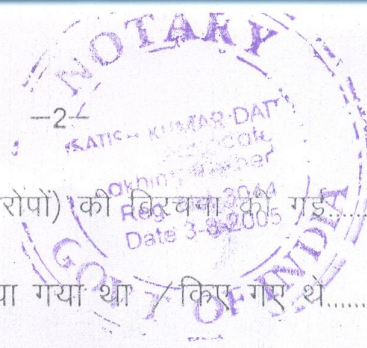 NOTARY
-2-
SATISH KUMAR DATT
Reg. 3044
Date 3-8-2005
GOVT OF INDIA
रोपों) की विरचना की गई......
या गया था / किए गए थे......